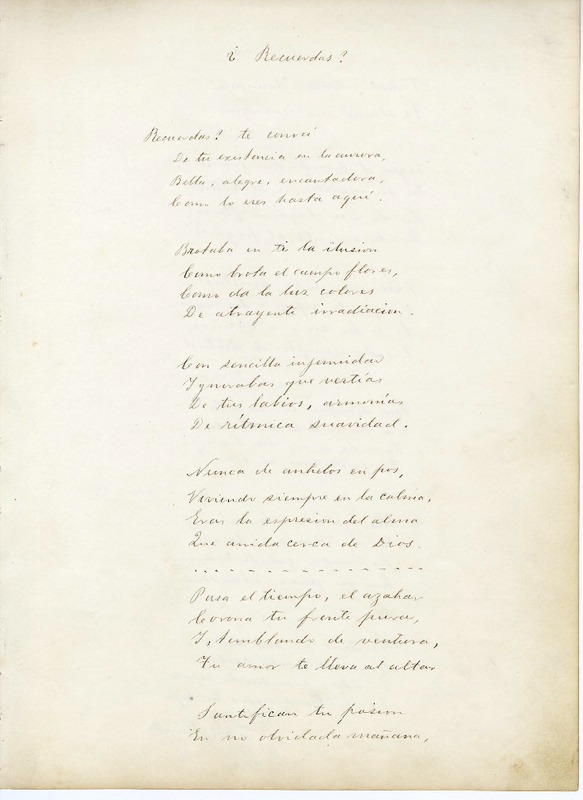 ¿ Recuerdas?
Recuerdas? te conocí
De tu existencia en la aurora,
Bella, alegre, encantadora,
Como lo eres hasta aquí.
Brotaba en ti la ilusion
Como brota el campo flores,
Como da la luz colores
De atrayente irradiacion.
Con sencilla injenuidad
Ignorabas que vertías
De tus labios, armonías
De rítmica suavidad.
Nunca de anhelos en pos,
Viviendo siempre en la calma,
Eras la espresion del alma
Que anida cerca de Dios.
Pasa el tiempo, el azahar
Corona tu frente pura,
I, temblando de ventura,
Tu amor te lleva al altar
Santifican tu pasion
En no olvidada mañana,